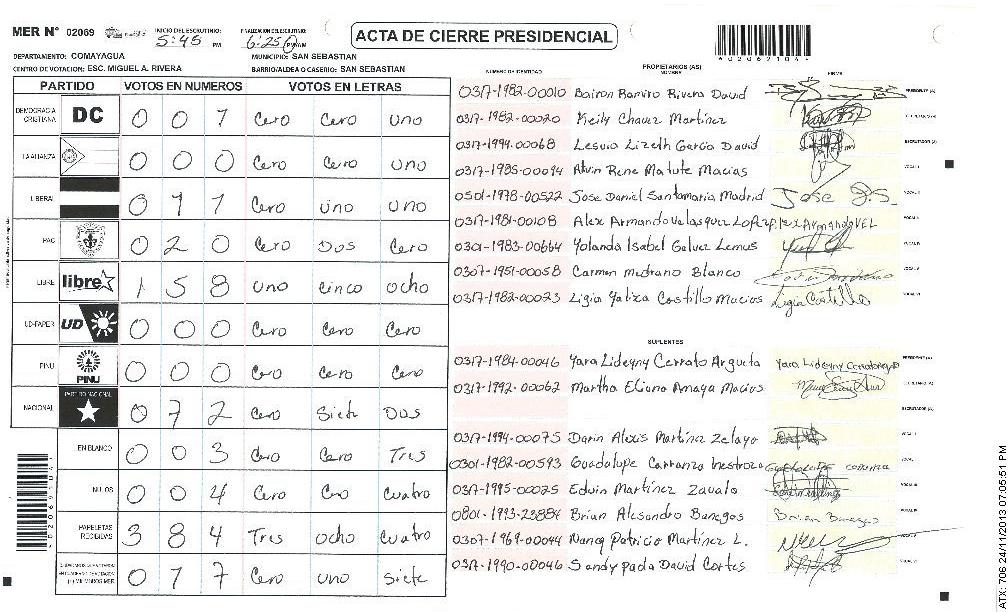 MER Nº 02069
INICIO DEL ESCRUTINIO:
5:45 PM
FINALIZACION DEL ESCRUTINIO:
6:25 PM/AM
ACTA DE CIERRE PRESIDENCIAL
DEPARTAMENTO: COMAYAGUA
MUNICIPIO: SAN SEBASTIAN
CENTRO DE VOTACION: ESC. MIGUEL A. RIVERA
BARRIO/ALDEA O CASERIO: SAN SEBASTIAN
PARTIDO VOTOS EN NUMEROS VOTOS EN LETRAS
DEMOCRACIA CRISTIANA DC 0 0 1 Cero Cero uno
LA ALIANZA 0 0 0 Cero Cero uno
LIBERAL 0 1 1 Cero uno uno
PAC 0 2 0 Cero Dos Cero
LIBRE libre 1 5 8 uno cinco ocho
UD-FAPER UD 0 0 0 Cero Cero Cero
PINU PINU 0 0 0 Cero Cero Cero
NACIONAL PARTIDO NACIONAL 0 7 2 Cero Siete Dos
EN BLANCO 0 0 3 Cero Cero Tres
NULOS 0 0 4 Cero Cro cuatro
PAPELETAS RECIBIDAS 3 8 4 Tres ocho cuatro
0 1 7 Cero uno Siete
NUMERO DE IDENTIDAD
PROPIETARIOS (AS)
NOMBRE
FIRMA
0317-1982-00010 Bairon Ramiro Rivera David PRESIDENTE (A)
0317-1982-00020 Keily Chavez Martinez
0317-1994-00068 Lesvia Lizeth Garcia David
0317-1985-00094 Alvin Rene Matute Macias
0501-1978-00522 Jose Daniel Santamaria Madrid Jose
0317-1981-00108 Alex Armando Velasquez Lopez
0301-1983-00664 Yolanda Isabel Galvez Lemus
0307-1951-00058 Carmen Medrano Blanco
0317-1982-00023 Ligia Yaliza Castillo Macias Ligia Castillo
SUPLENTES
0317-1984-00046 Yara Lideyny Cerrato Argueta Yara Lideyny PRESIDENTE (A)
0317-1992-00062 Martha Eliana Amaya Macias SECRETARIO (A)
ESCRUTADOR (A)
0317-1994-00075 Darin Alexis Martinez Zelaya
0301-1982-00593 Guadalupe Carranza Inestroza
0317-1995-00025 Edwin Martinez Zavala
0801-1993-23884 Brian Alesandro Banegas Brian Banegas
0307-1969-00044 Nancy Patricia Martinez L.
0317-1990-00046 Sandy paola David Cortes
*020691041*
ATX: 706 24/11/2013 07:05:51 PM